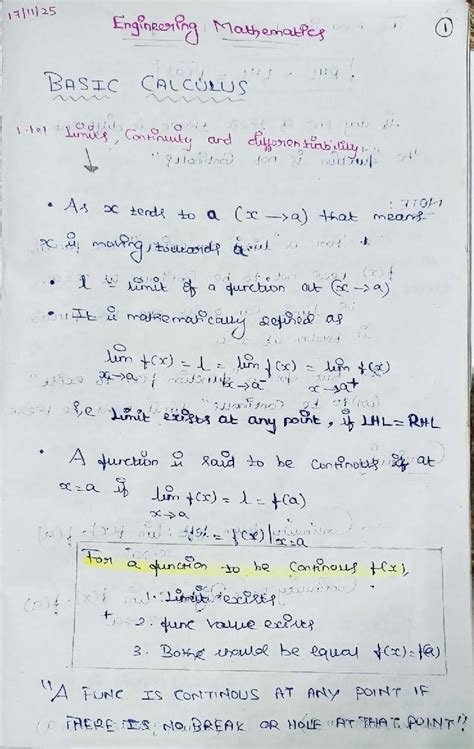 17/11/25
Engineering Mathematics
1
BASIC CALCULUS
1.1.1 Limits, Continuity and differentiability,
• As x tends to a (x → a) that means
x is moving towards a
• l = limit of a function at (x → a)
• It is mathematically defined as
lim f(x) = l = lim f(x) = lim f(x)
x→a x→a⁻ x→a⁺
i.e limit exists at any point, if LHL = RHL
• A function is said to be continous at
x=a if lim f(x) = l = f(a)
x→a
= f(x)|x=a
For a function to be Continous f(x),
1. Limit exists
2. func value exists
3. Both should be equal f(x) = f(a)
"A FUNC IS CONTINOUS AT ANY POINT IF
THERE IS NO BREAK OR HOLE AT THAT POINT"